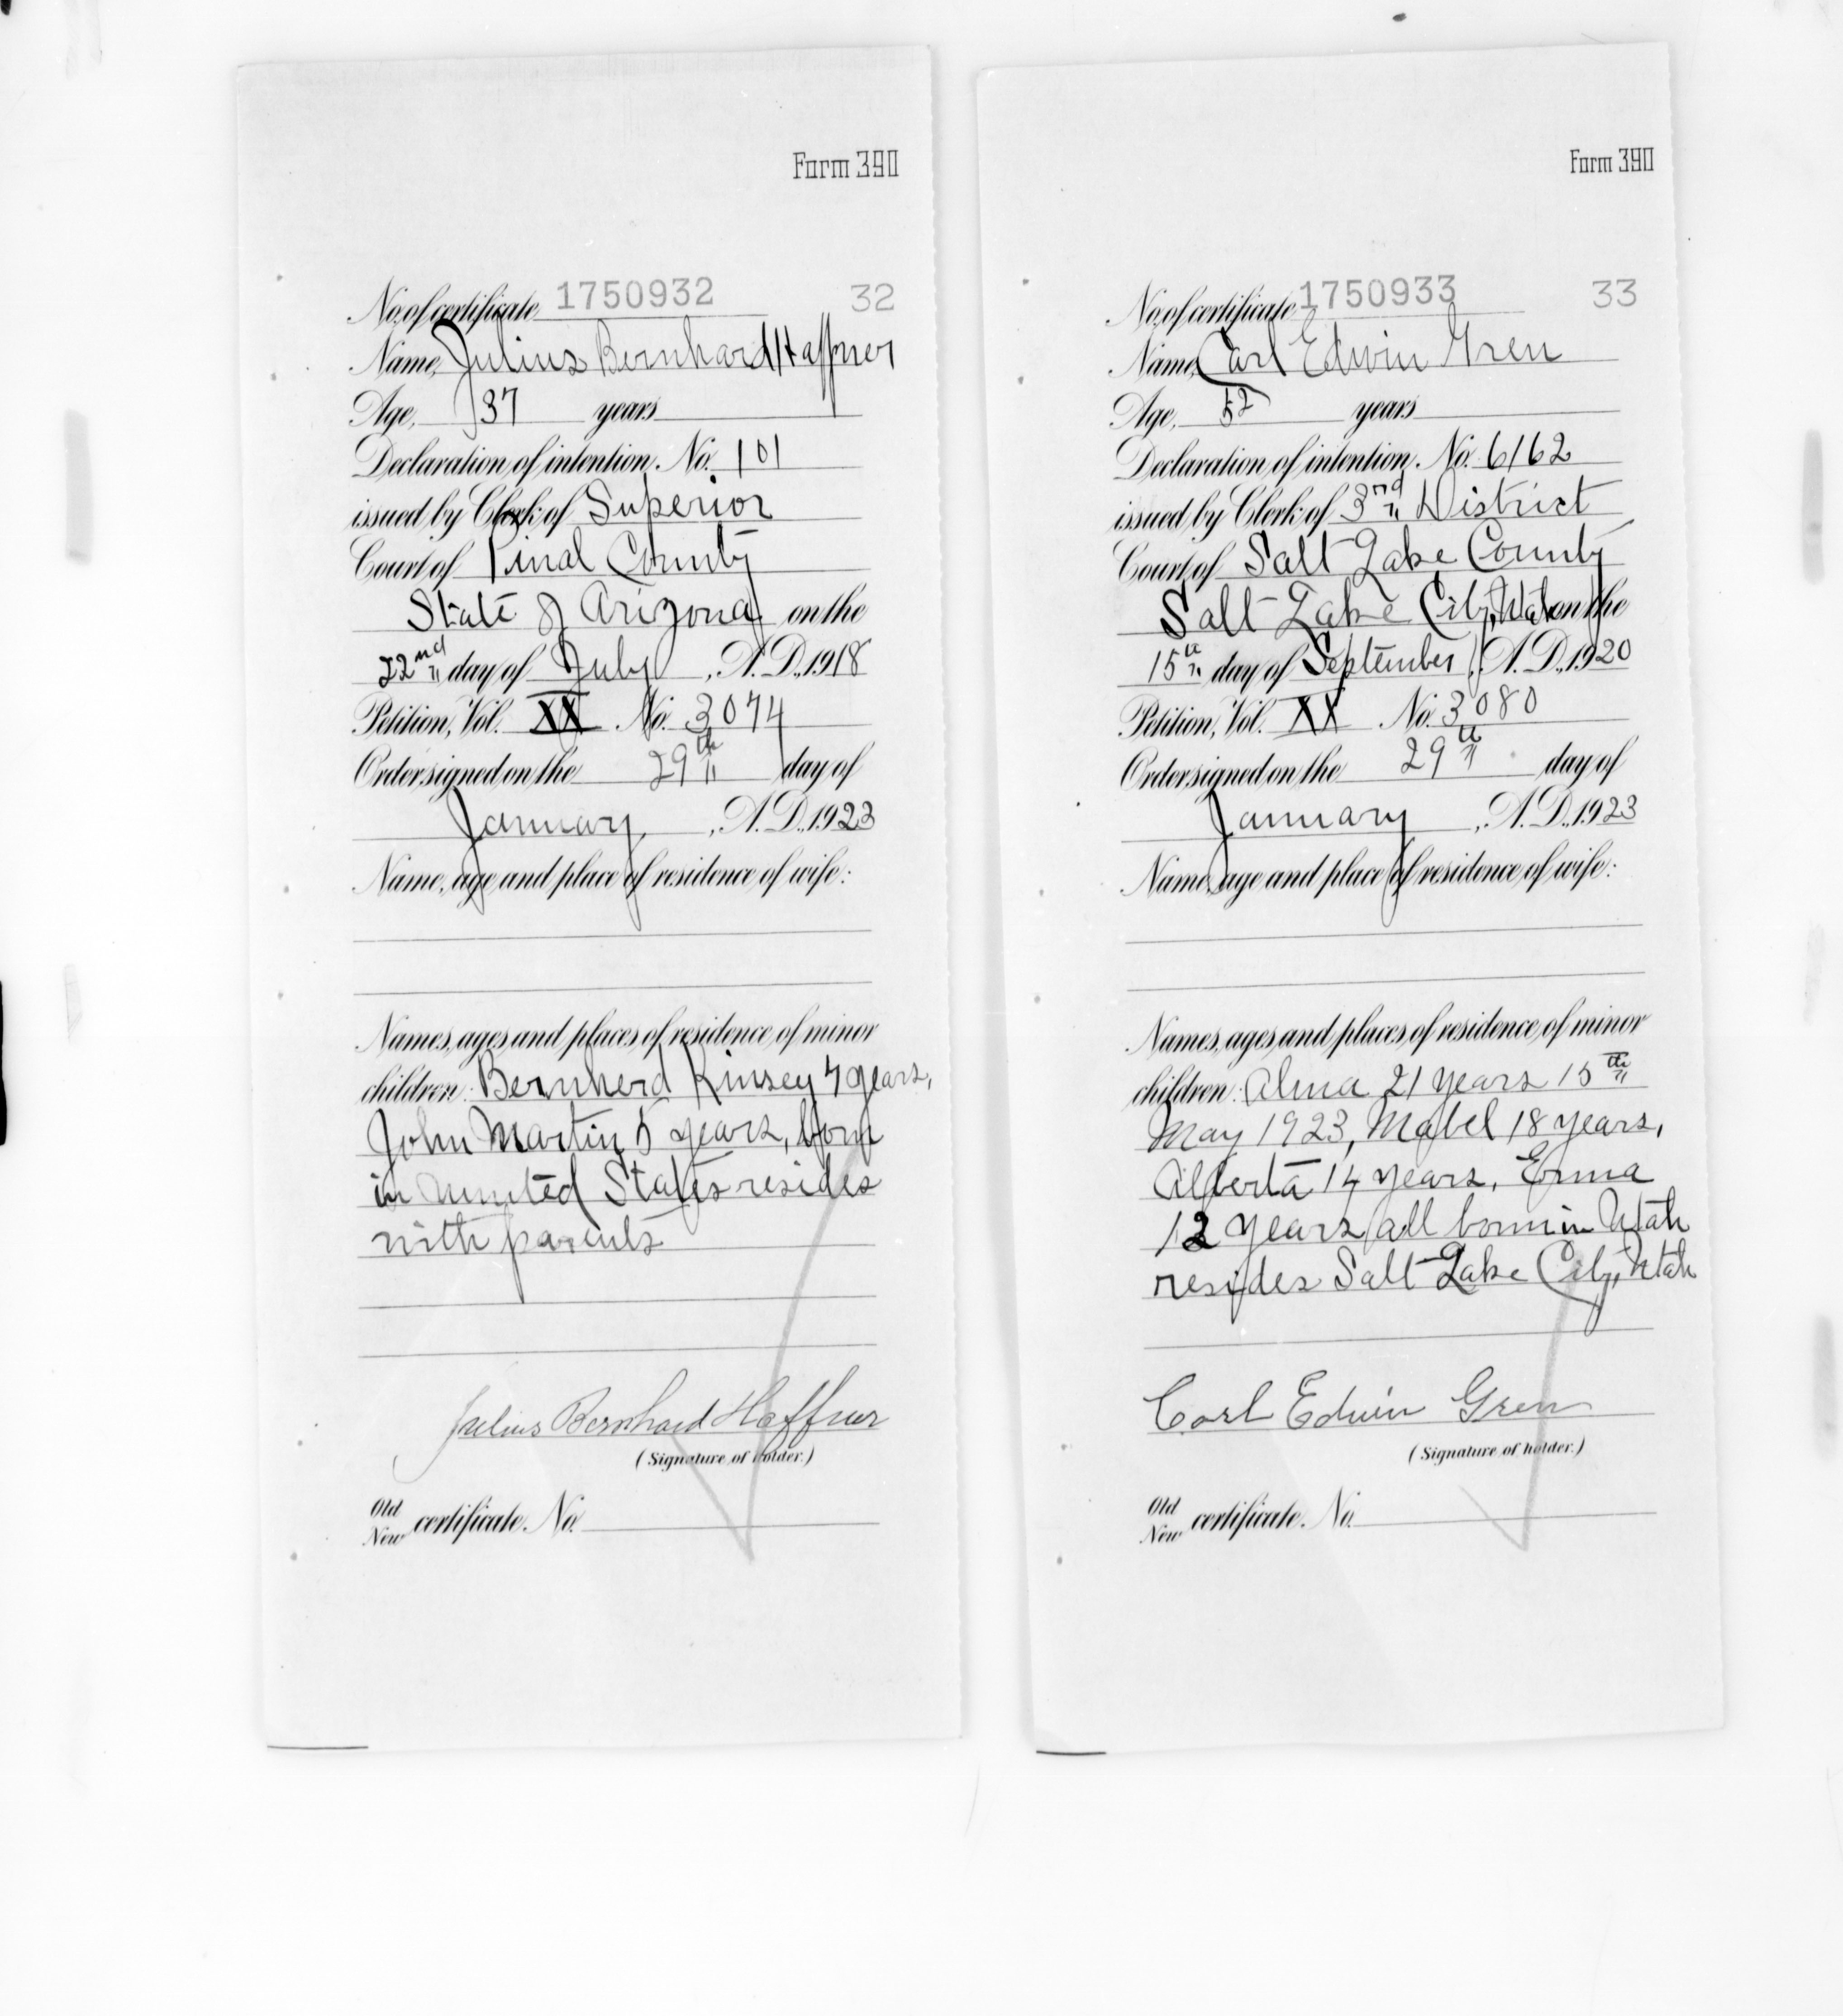 Form 390
No. of certificate 1750932 32
Name, Julius Bernhard Haffner
Age, 37 years
Declaration of intention. No. 101
issued by Clerk of Superior
Court of Pinal County
State of Arizona on the
22nd day of July, A. D., 1918
Petition, Vol. XX No. 3074
Order signed on the 29th day of
January, A. D., 1923
Name, age and place of residence of wife:
Names, ages and places of residence of minor
children: Bernherd Kinsey 4 years,
John Martin 5 years, born
in United States resides
with parents
Julius Bernhard Haffner
(Signature of holder.)
Old
New certificate. No.
Form 390
No. of certificate 1750933 33
Name, Carl Edwin Gren
Age, 52 years
Declaration of intention. No. 6162
issued by Clerk of 3rd District
Court of Salt Lake County
Salt Lake City, Utah on the
15th day of September, A. D., 1920
Petition, Vol. XX No. 3080
Order signed on the 29th day of
January, A. D., 1923
Name, age and place of residence of wife:
Names, ages and places of residence of minor
children: Alma 21 years 15th
May 1923, Mabel 18 years,
Alberta 14 years, Erma
12 years all born in Utah
resides Salt Lake City, Utah
Carl Edwin Gren
(Signature of holder.)
Old
New certificate. No.